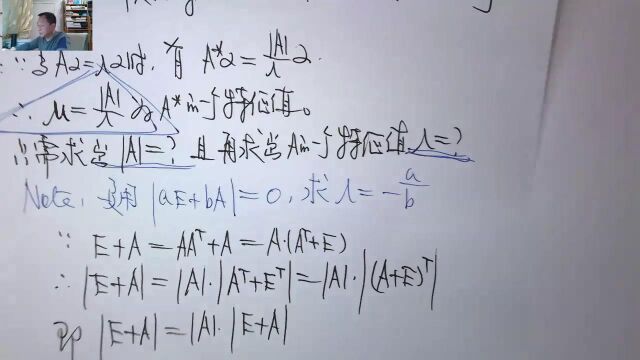 ∵ 当Aα=λα时, 有 A*α=|A|/λ α.
∴ μ=|A|/λ 为 A* 的一个特征值。
∴ 需求出 |A|=? 且再求出A的一个特征值 λ=?
Note, 要用 |aE+bA|=0, 求 λ=-a/b
∵ E+A=AAᵀ+A=A·(Aᵀ+E)
∴ |E+A|=|A|·|Aᵀ+Eᵀ|=|A|·|(A+E)ᵀ|
即 |E+A|=|A|·|E+A|